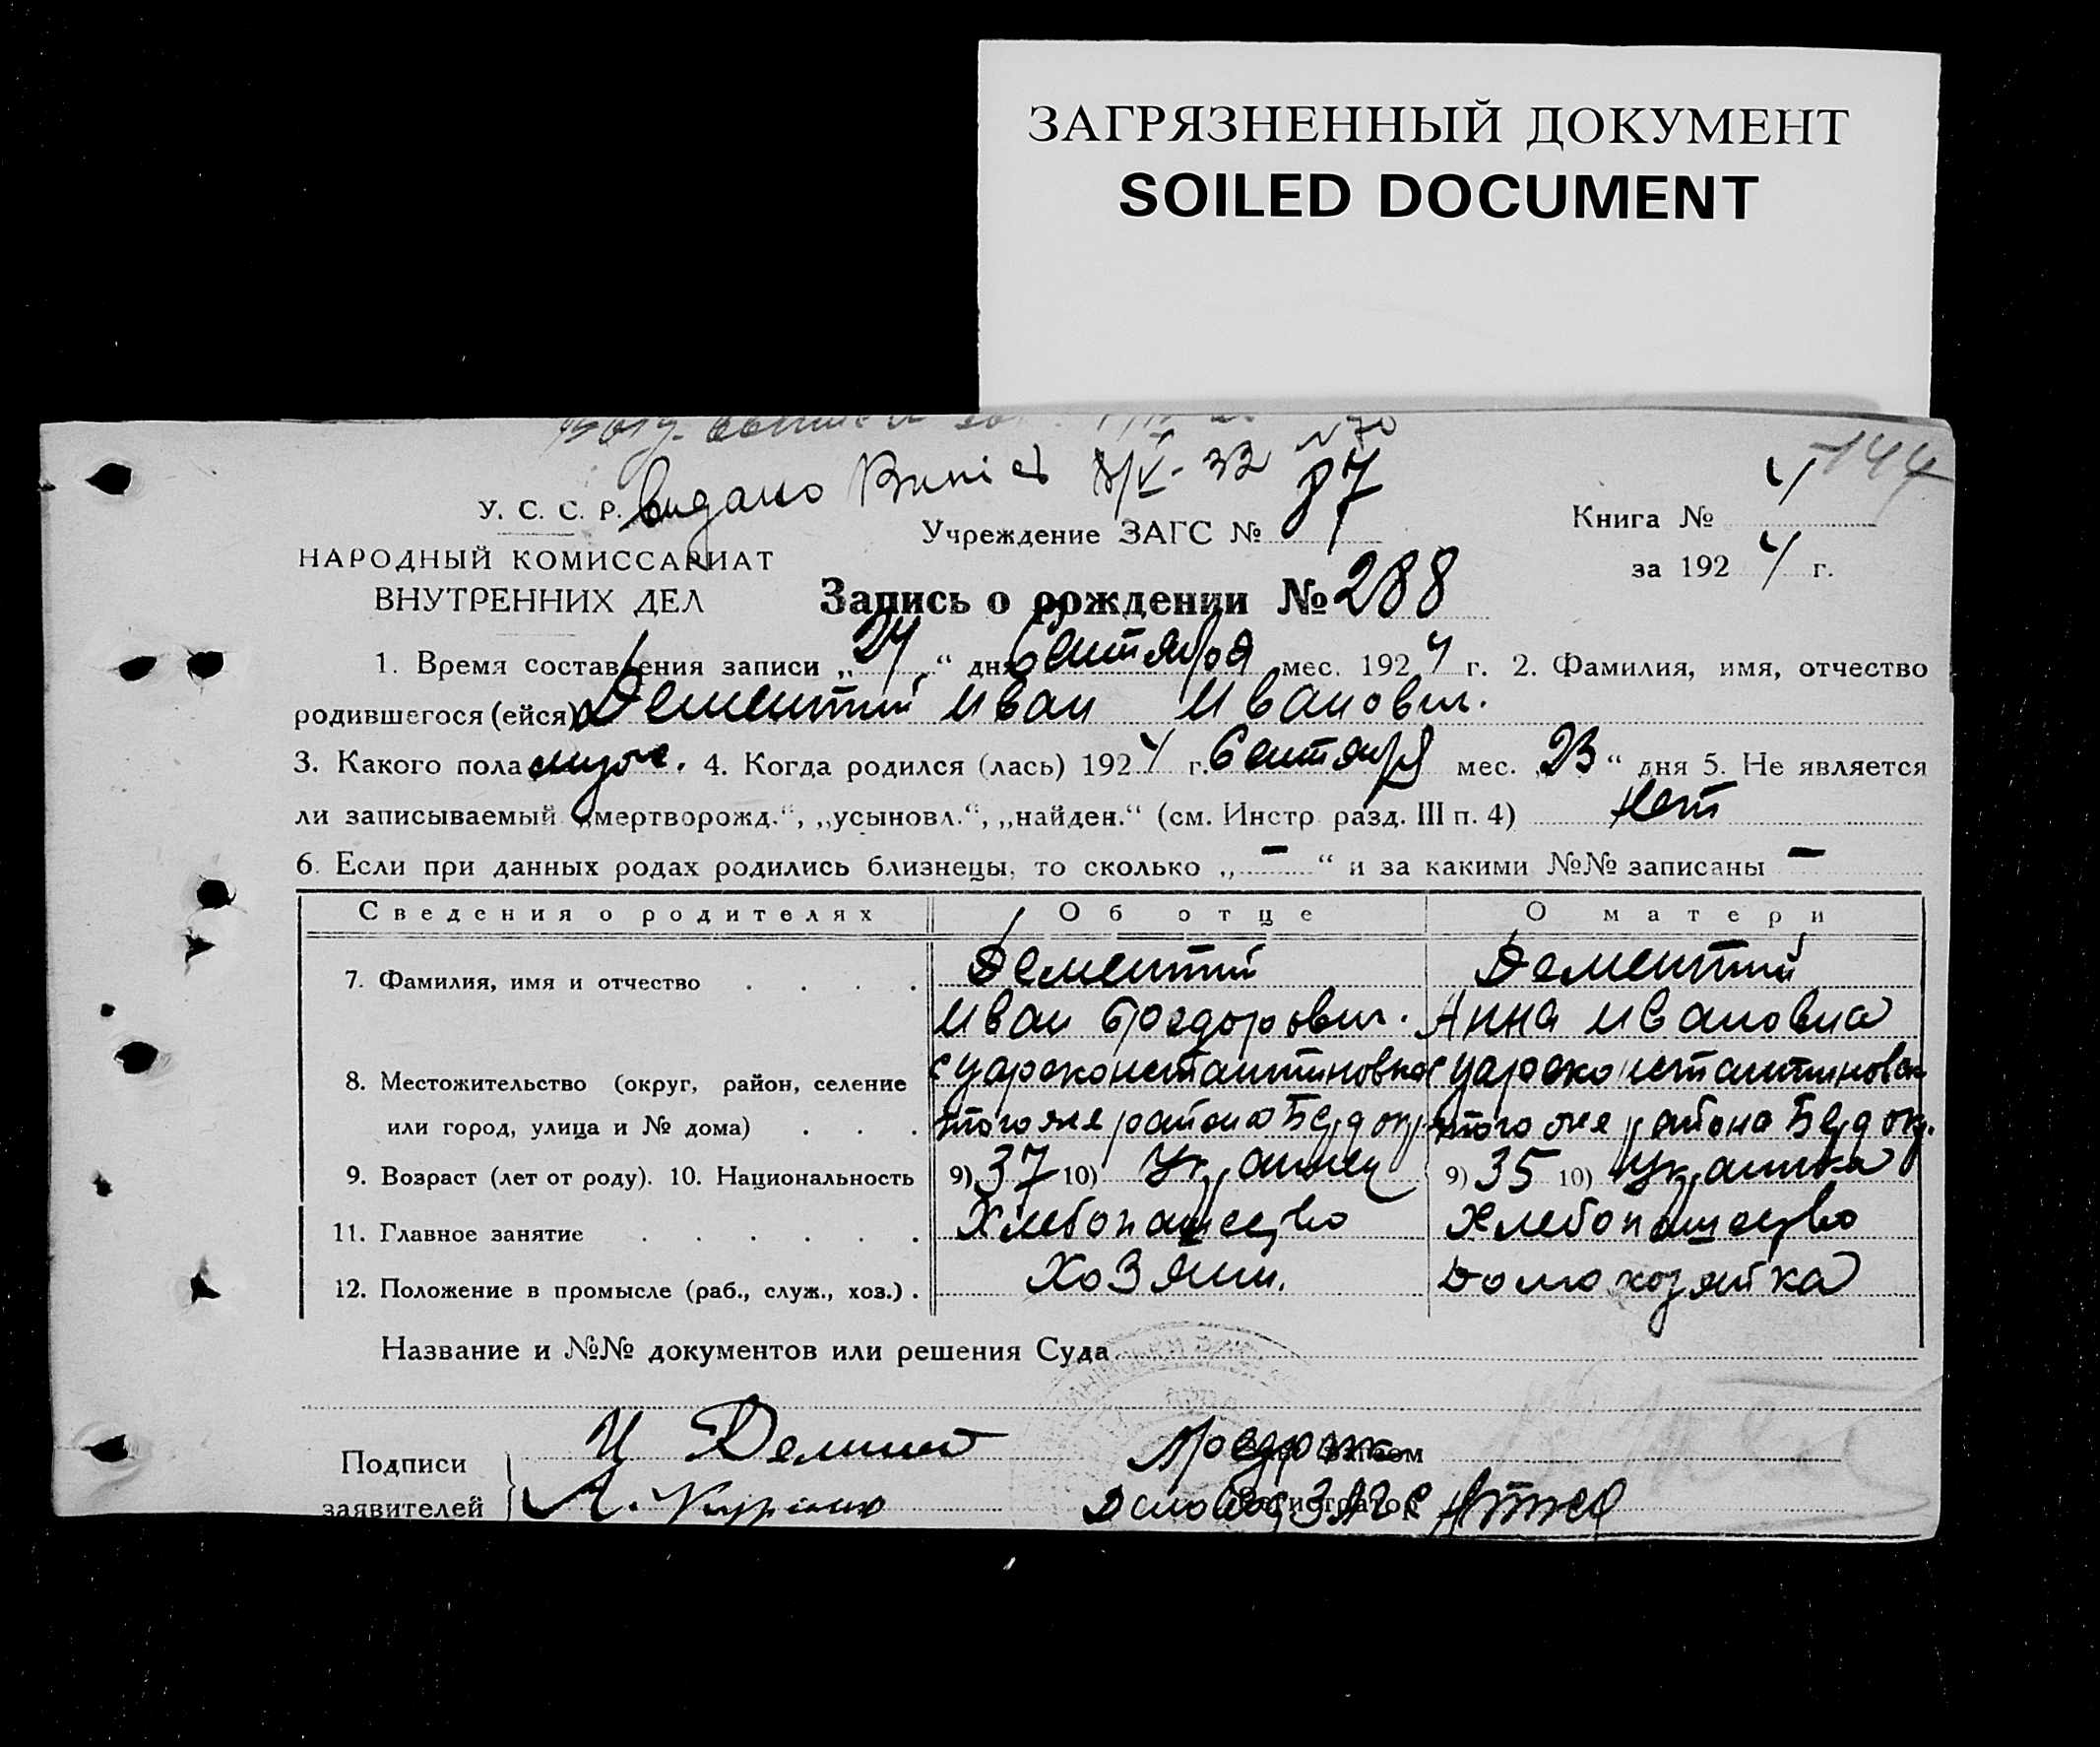 ЗАГРЯЗНЕННЫЙ ДОКУМЕНТ
SOILED DOCUMENT
144
У. С. С. Р.
НАРОДНЫЙ КОМИССАРИАТ
ВНУТРЕННИХ ДЕЛ
Видано 8/V-32 №70
Учреждение ЗАГС № 87
Книга № 4
за 1924 г.
Запись о рождении № 288
1. Время составления записи „24“ дня Сентября мес. 1924 г. 2. Фамилия, имя, отчество
родившегося (ейся) Дементий Иван Иванович.
3. Какого пола муж. 4. Когда родился (лась) 1924 г. Сентября мес. „23“ дня 5. Не является
ли записываемый „мертворожд.“, „усыновл.“, „найден.“ (см. Инстр. разд. III п. 4) Нет
6. Если при данных родах родились близнецы, то сколько „—“ и за какими №№ записаны —
Сведения о родителях Об отце О матери
7. Фамилия, имя и отчество Дементий Дементий
Иван Феодорович. Анна Ивановна
8. Местожительство (округ, район, селение с Цареконстантиновка с Цареконстантиновка
или город, улица и № дома) того же района Берд окр. того же района Берд окр.
9. Возраст (лет от роду). 10. Национальность 9) 37 10) Украинец 9) 35 10) Украинка
11. Главное занятие Хлебопашество Хлебопашество
12. Положение в промысле (раб., служ., хоз.) Хозяин. Домохозяйка
Название и №№ документов или решения Суда
Подписи
заявителей
И